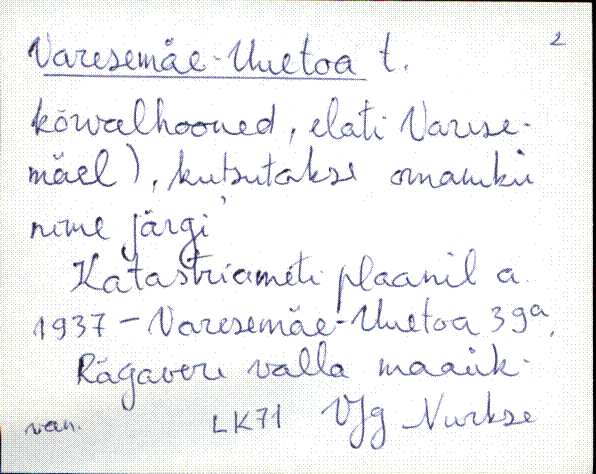 2
Varesemäe-Uuetoa t.
kõrvalhooned, elati Varese-
mäel), kutsutakse omaniku
nime järgi
Katastriameti plaanil a.
1937 – Varesemäe-Uuetoa 39a,
Rägavere valla
van. LK71 Vjg Nurkse